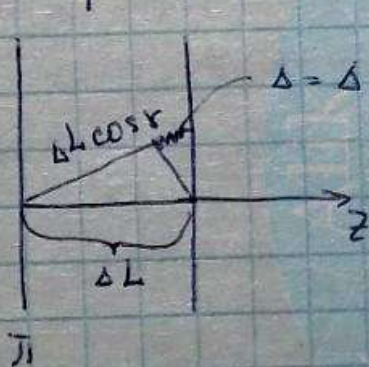 Δ = Δ
ΔL cos γ
Z
ΔL
π